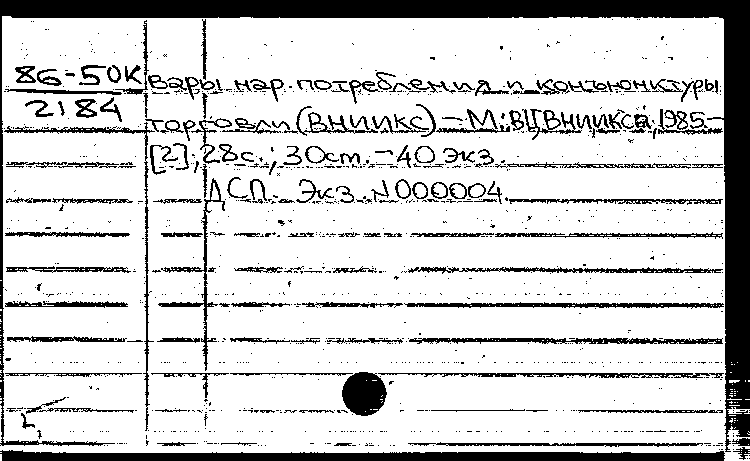 86-50К вары нар. потребления и конъюнктуры
2184 торговли (ВНИИКС) – М.: ВЦ ВНИИКСа, 1985.–
[2], 28с.; 30см. – 40 экз.
ДСП. Экз. N000004.